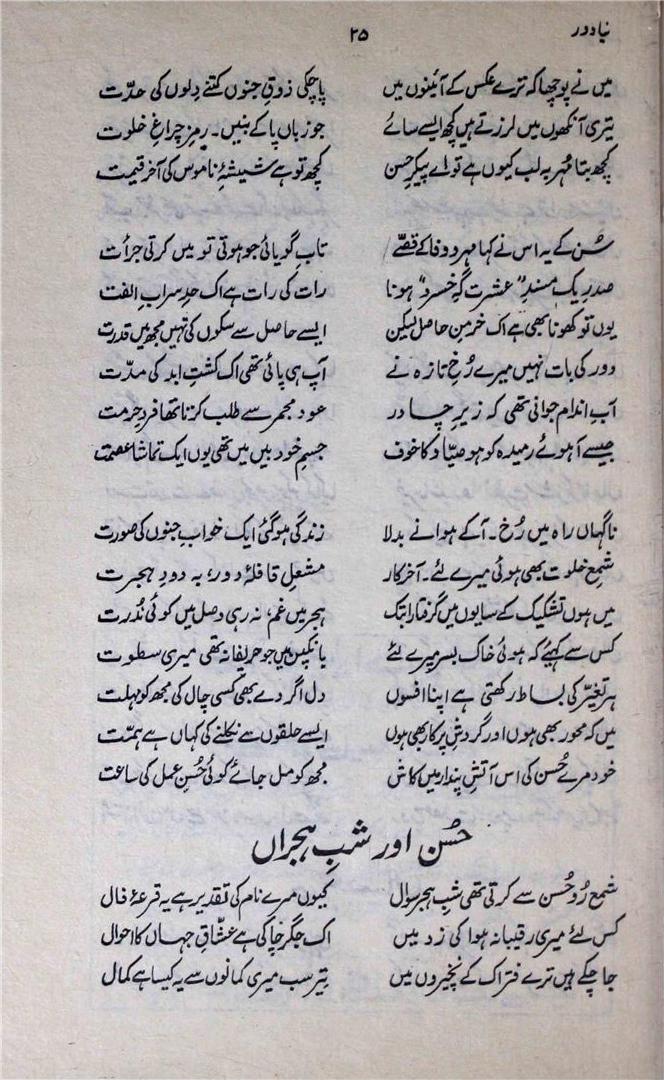 نیا دور
۲۵
میں نے پوچھا کہ ترے عکس کے آئینوں میں پا چکی ذوقِ جنوں کتنے دِلوں کی حدّت
تیری آنکھوں میں لرزتے ہیں کچھ ایسے سائے جو زباں پا کے بنیں۔ رمزِ چراغِ خلوت
کچھ بتا مُہر بہ لب کیوں ہے تو اے پیکرِ حسن کچھ تو ہے شیشۂ ناموس کی آخر قیمت
سُن کے یہ اس نے کہا مہر و وفا کے قصّے تابِ گویائی جو ہوتی تو میں کرتی جرأت
صدرِ یک مسندِ "عشرت گہِ خسرو" ہونا رات کی رات ہے اک حدِ سرابِ الفت
یوں تو کھونا بھی ہے اک خرمنِ حاصل لیکن ایسے حاصل سے سکوں کی نہیں مجھ میں قدرت
دور کی بات نہیں میرے رُخِ تازہ نے آپ ہی پائی تھی اک کشتِ ابد کی مدّت
آبِ اندام جوانی تھی کہ زیرِ چادر عود و مجمر سے طلب کرتا تھا فردِ حرمت
جیسے آہوئے رمیدہ کو ہو صیّاد کا خوف جسمِ خود بیں میں تھی یوں ایک تماشا عصمت
ناگہاں راہ میں رُخ۔ آ کے ہوا نے بدلا زندگی ہو گئی ایک خوابِ جنوں کی صورت
شمعِ خلوت بھی ہوئی میرے لئے۔ آخر کار مشعلِ قافلۂ دور، بہ دودِ ہجرت
میں ہوں تشکیک کے سایوں میں گرفتار ابتک ہجر میں غم، نہ رہی وصل میں کوئی نُدرت
کس سے کہیئے کہ ہوئی خاک بسر میرے لئے بانکپن میں جو حریفانہ تھی میری سطوت
ہر تغیّر کی بساط رکھتی ہے اپنا افسوں دل اگر دے بھی کسی چال کی مجھ کو مہلت
میں کہ محور بھی ہوں اور گردشِ پرکار بھی ہوں ایسے حلقوں سے نکلنے کی کہاں ہے ہمّت
خود مرے حُسن کی اس آتشِ پندار میں کاش مجھ کو مل جائے کوئی حُسنِ عمل کی ساعت
حُسن اور شبِ ہجراں
شمع رُو حُسن سے کرتی تھی شبِ ہجر سوال کیوں مرے نام کی تقدیر ہے یہ قرعۂ فال
کس لئے میری رقیبانہ ہوا کی زد میں اک جگر چاکی ہے عشّاقِ جہاں کا احوال
جا چکے ہیں ترے فتراک کے نخچیروں میں تیر سب میری کمانوں سے یہ کیسا ہے کمال